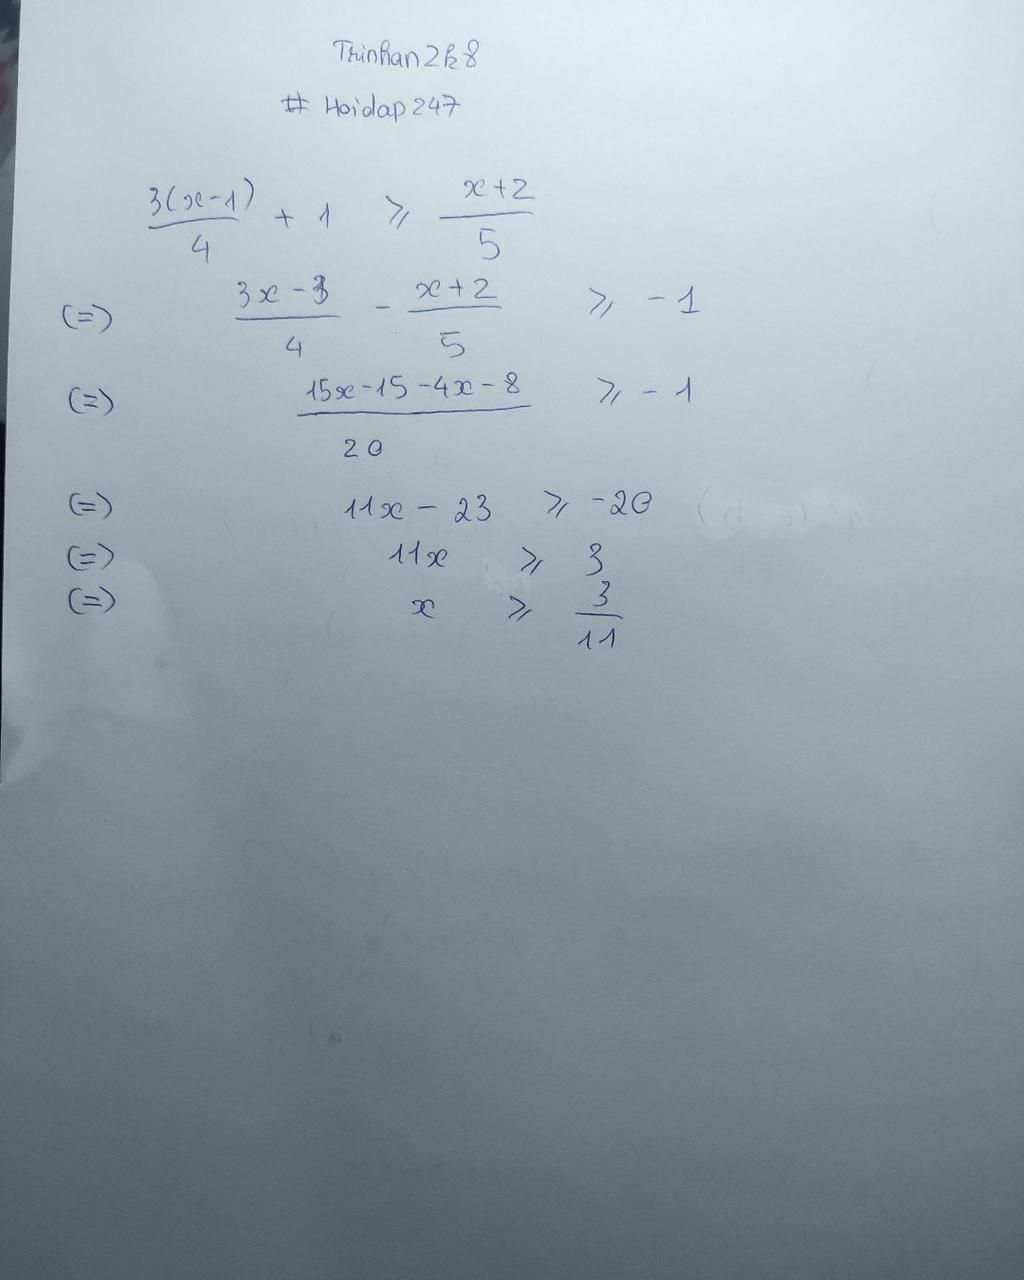 Trinhan2k8
# Hoidap247
3(x-1)/4 + 1 ⩾ x+2/5
(=) 3x-3/4 - x+2/5 ⩾ -1
(=) 15x-15-4x-8/20 ⩾ -1
(=) 11x - 23 ⩾ -20
(=) 11x ⩾ 3
(=) x ⩾ 3/11